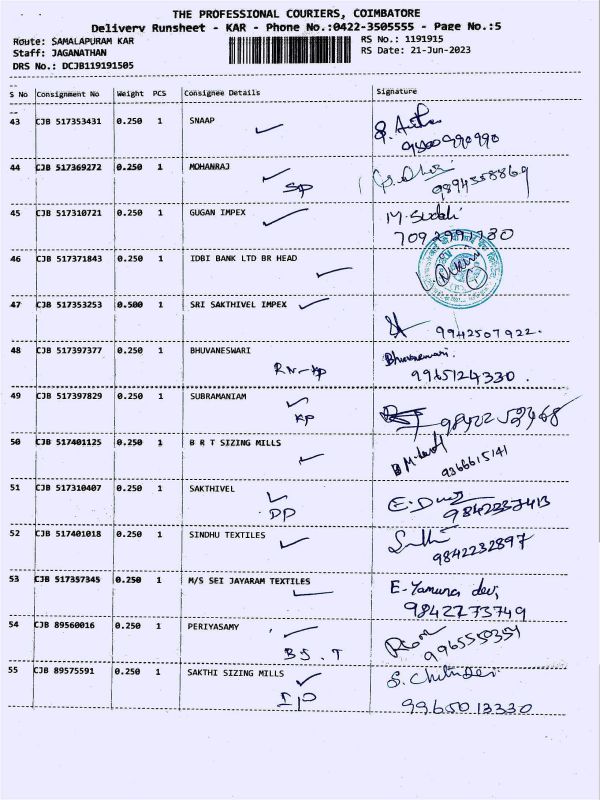 THE PROFESSIONAL COURIERS, COIMBATORE
Delivery Runsheet - KAR - Phone No.:0422-3505555 - Page No.:5
Route: SAMALAPURAM KAR
RS No.: 1191915
Staff: JAGANATHAN
RS Date: 21-Jun-2023
DRS No.: DCJB119191505
S No Consignment No Weight PCS Consignee Details Signature
43 CJB 517353431 0.250 1 SNAAP
44 CJB 517369272 0.250 1 MOHANRAJ
SP 9894358869
45 CJB 517310721 0.250 1 GUGAN IMPEX
46 CJB 517371843 0.250 1 IDBI BANK LTD BR HEAD
47 CJB 517353253 0.500 1 SRI SAKTHIVEL IMPEX
9942507922.
48 CJB 517397377 0.250 1 BHUVANESWARI Bhuvaneswari.
9965124330.
49 CJB 517397829 0.250 1 SUBRAMANIAM
KP
50 CJB 517401125 0.250 1 B R T SIZING MILLS
9366615141
51 CJB 517310407 0.250 1 SAKTHIVEL
DP 9842237413
52 CJB 517401018 0.250 1 SINDHU TEXTILES
9842232897
53 CJB 517357345 0.250 1 M/S SEI JAYARAM TEXTILES E-Yamuna devi
9842273749
54 CJB 89560016 0.250 1 PERIYASAMY
BS.T 9965550351
55 CJB 89575591 0.250 1 SAKTHI SIZING MILLS
9965013330